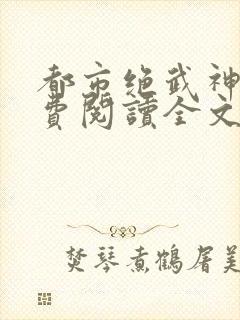 都市绝武神
費閱讀全文
焚琴煮鶴屠美